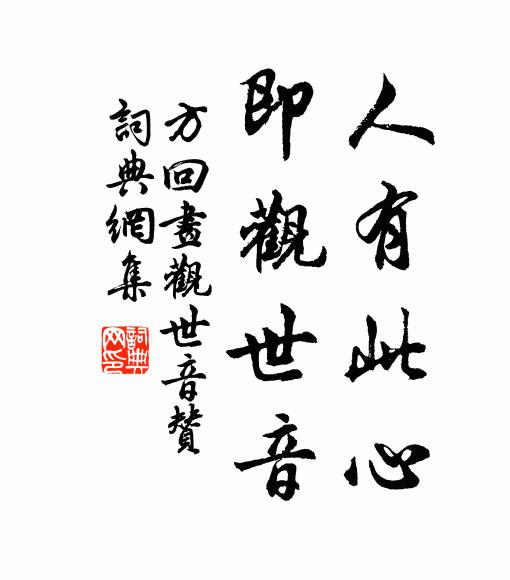 人有此心
即觀世音
方回畫觀世音贊
詞典網集
詞典
网印